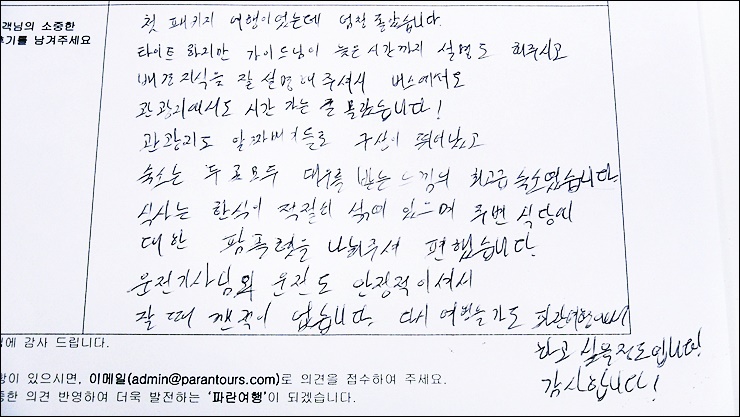 객님의 소중한
후기를 남겨주세요
첫 패키지 여행이었는데 엄청 좋았습니다.
타이트 하지만 가이드님이 늦은 시간까지 설명도 해주시고
배경지식을 잘 설명해 주셔서 버스에서도
관광지에서도 시간 가는 줄 몰랐습니다!
관광지도 알짜배기들로 구성이 뛰어났고
숙소는 두 곳 모두 대우를 받는 느낌의 최고급 숙소였습니다.
식사는 한식이 적절히 섞여 있으며 주변 식당에
대한 팜플렛을 나눠주셔 편했습니다.
운전기사님의 운전도 안정적이셔서
잘 때 깬 적이 없습니다. 다시 여행을 가도 파란여행에서
하고 싶을 정도입니다!
감사합니다!
에 감사 드립니다.
항이 있으시면, 이메일(admin@parantours.com)로 의견을 접수하여 주세요.
중한 의견 반영하여 더욱 발전하는 '파란여행'이 되겠습니다.